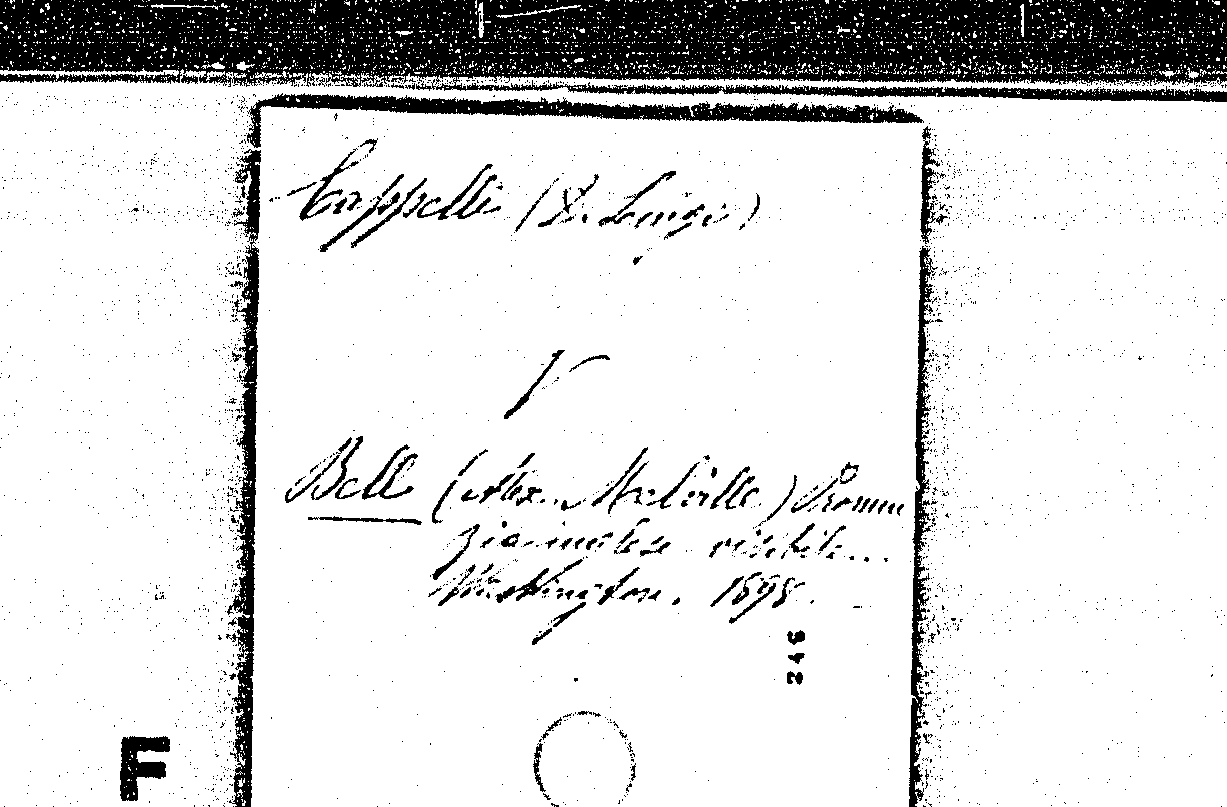 Cappelli (D. Luigi)
V
Bell (Alex. Melville) Pronun
zia inglese visibile...
Washington. 1898.
246
F